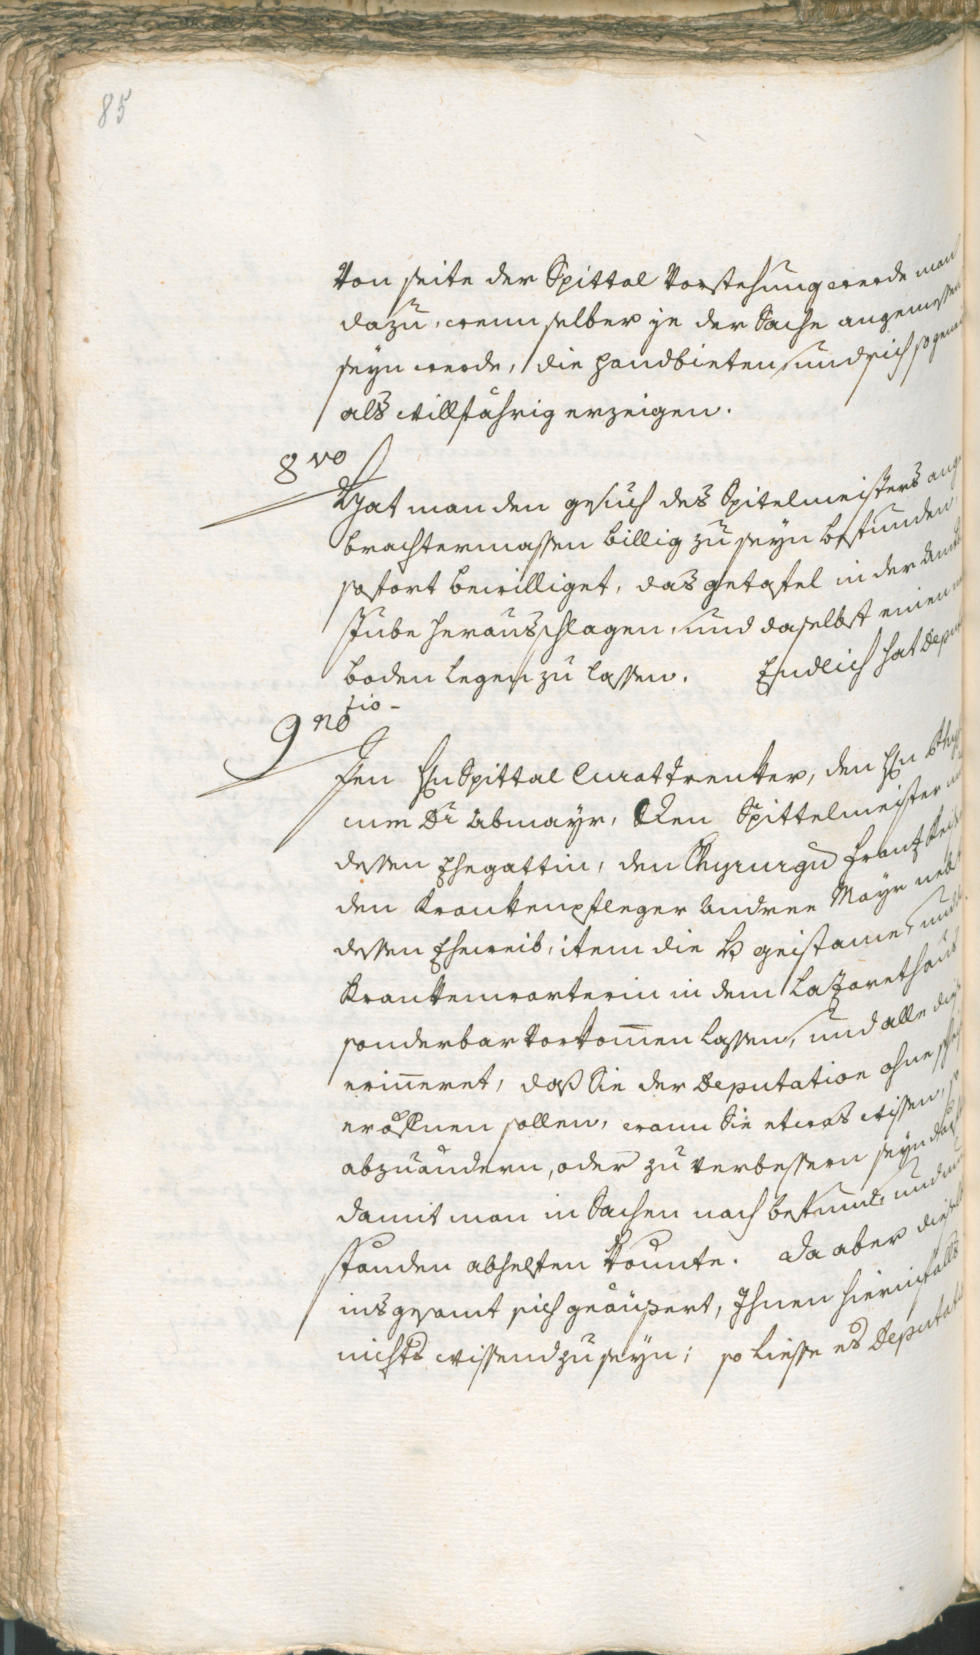 85
Von seite der Spittal Vorstehung werde man
dazu, wenn selber je der Sache angemessen
seyn werde, die handbieten, und sich so gene
als willfährig erzeigen.
8vo
Hat man den gesuch des Spitelmeisters ang
brachtermassen billig zu seyn befunden
sofort bewilliget, das getafel in der
stube herausschlagen, und daselbst einen
boden legen zu lassen. Endlich hat Depu
tio-
9no
sen Hn Spittal Curat Trenker, den Hn
cum Dr Abmayr, Den Spittelmeister
dessen Ehegattin, den Chyrurgu Frantz
den Krankenpfleger Andree Mayr neb
dessen Eheweib, item die und
Krankenwarterin in dem Lazarethaus
sonderbar vorkom̅en lassen, und alle
erin̅eret, daß Sie der Deputation ohne
eröffnen sollen, wann Sie etwas wissen, so
abzuändern, oder zu verbessern seyn
damit man in Sachen nach befund, und
standen abhelfen konnte. Da aber
insgesamt sich geäußert, Ihnen hierinfalls
nichts wissend zu seyn; so liesse es Deputat